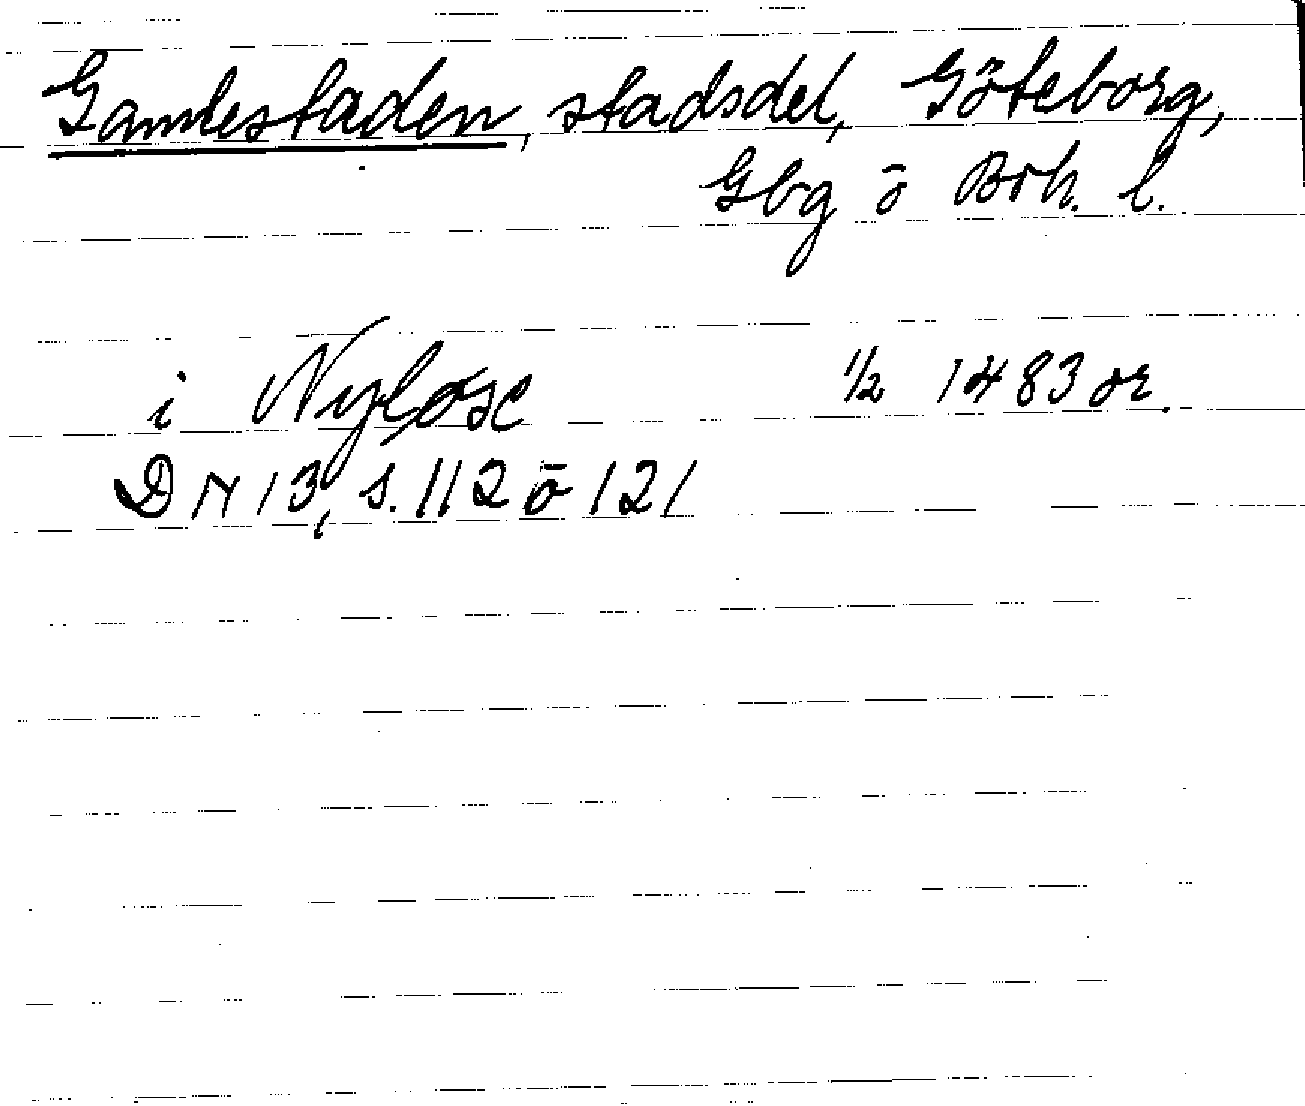 Gamlestaden, stadsdel, Göteborg,
Gbg o Boh. l.
i Nyløse 1/2 1483 or.
DN 13, s. 112 o 121